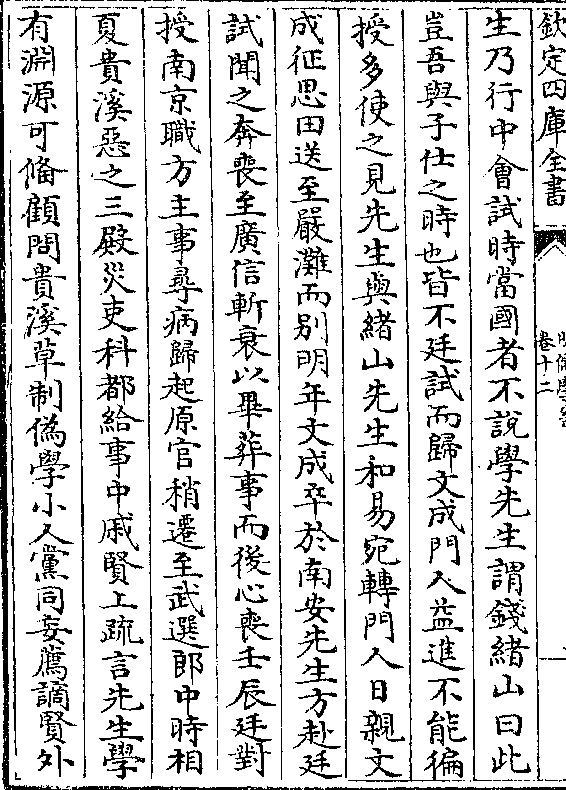 欽定四庫全書
卷十二
生乃行中會試時當國者不說學先生謂錢緒山曰此
豈吾與子仕之時也皆不廷試而歸文成門人益進不能徧
授多使之見先生與緒山先生和易宛轉門人日親文
成征思田送至嚴灘而别明年文成卒於南安先生方赴廷
試聞之奔喪至廣信斬衰以畢葬事而後心喪壬辰廷對
授南京職方主事尋病歸起原官稍遷至武選郎中時相
夏貴溪惡之三殿災吏科都給事中戚賢上疏言先生學
有淵源可備顧問貴溪草制偽學小人黨同妄薦謫賢外